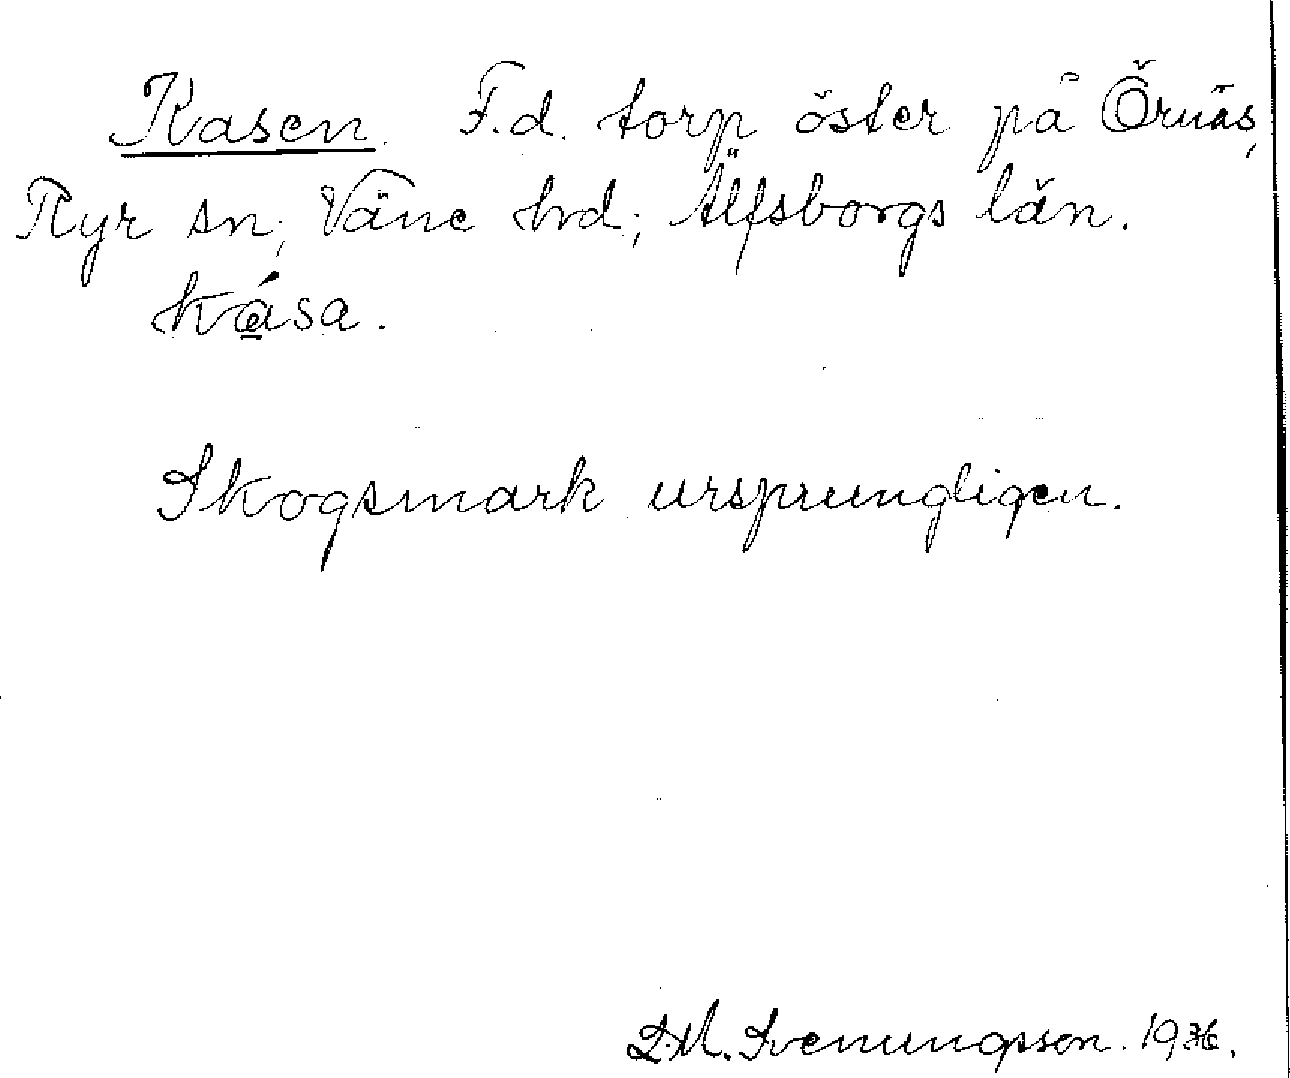 Kasen. F.d. torp öster på Örnäs,
Ryr sn; Väne hrd; Älfsborgs län.
kása.
Skogsmark ursprungligen.
D.M. Svenungsson. 1936.